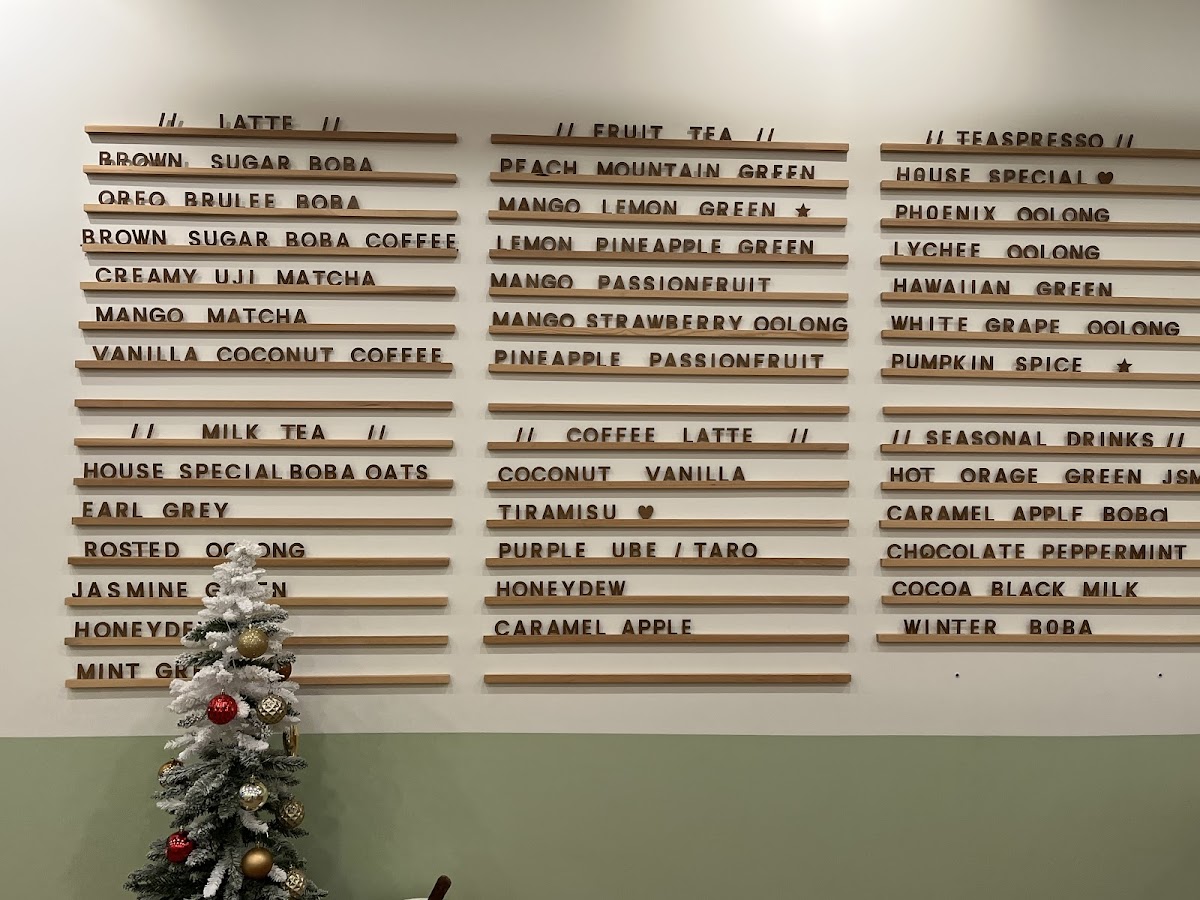 // LATTE //
BROWN SUGAR BOBA
OREO BRULEE BOBA
BROWN SUGAR BOBA COFFEE
CREAMY UJI MATCHA
MANGO MATCHA
VANILLA COCONUT COFFEE
// MILK TEA //
HOUSE SPECIAL BOBA OATS
EARL GREY
ROSTED OOLONG
JASMINE GREEN
HONEYDE
MINT GRE
// FRUIT TEA //
PEACH MOUNTAIN GREEN
MANGO LEMON GREEN ★
LEMON PINEAPPLE GREEN
MANGO PASSIONFRUIT
MANGO STRAWBERRY OOLONG
PINEAPPLE PASSIONFRUIT
// COFFEE LATTE //
COCONUT VANILLA
TIRAMISU ♥
PURPLE UBE / TARO
HONEYDEW
CARAMEL APPLE
// TEASPRESSO //
HOUSE SPECIAL ♥
PHOENIX OOLONG
LYCHEE OOLONG
HAWAIIAN GREEN
WHITE GRAPE OOLONG
PUMPKIN SPICE ★
// SEASONAL DRINKS //
HOT ORAGE GREEN JSM
CARAMEL APPLE BOBa
CHOCOLATE PEPPERMINT
COCOA BLACK MILK
WINTER BOBA